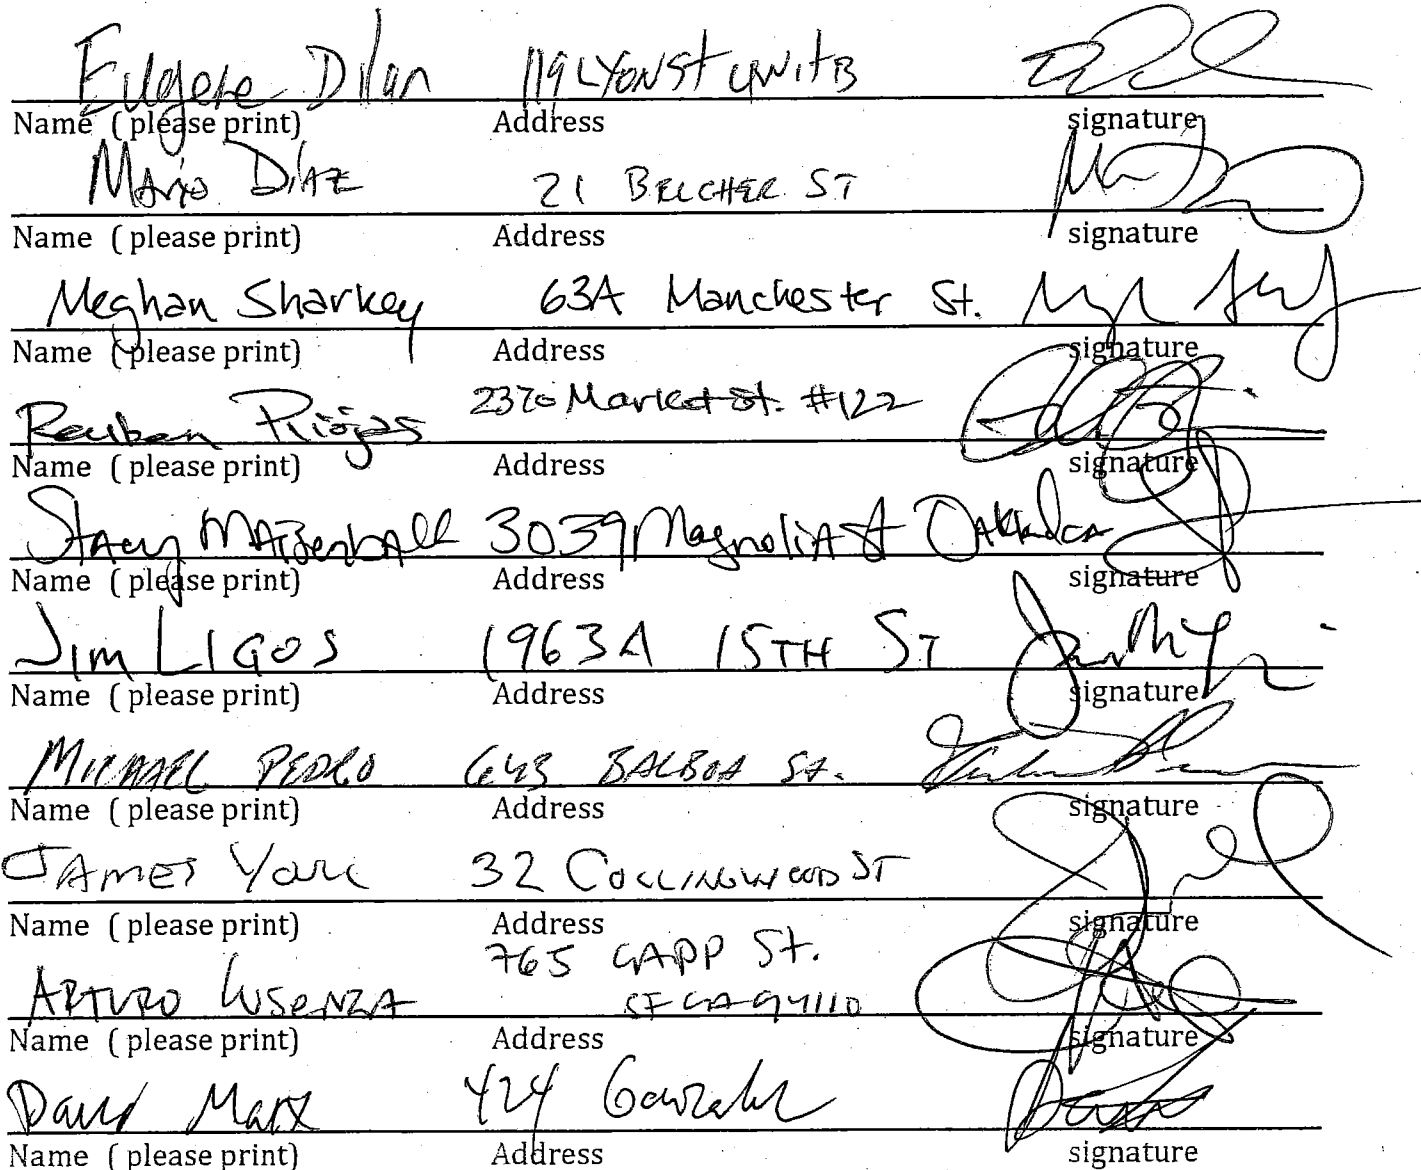 Eugene Dilan 119 LYON ST UNIT B
Name (please print) Address signature
Mario Diaz 21 BELCHER ST
Name (please print) Address signature
Meghan Sharkey 63A Manchester St.
Name (please print) Address signature
Reuben Riojas 2370 Market St. #122
Name (please print) Address signature
Stacy 3039 Magnolia St
Name (please print) Address signature
JIM LIGOS 1963A 15TH ST
Name (please print) Address signature
MICHAEL PEDRO 643 BALBOA St.
Name (please print) Address signature
JAMES York 32 COLLINGWOOD ST
Name (please print) Address signature
765 CAPP St.
ARTURO SF CA 94110
Name (please print) Address signature
David Marx 424
Name (please print) Address signature